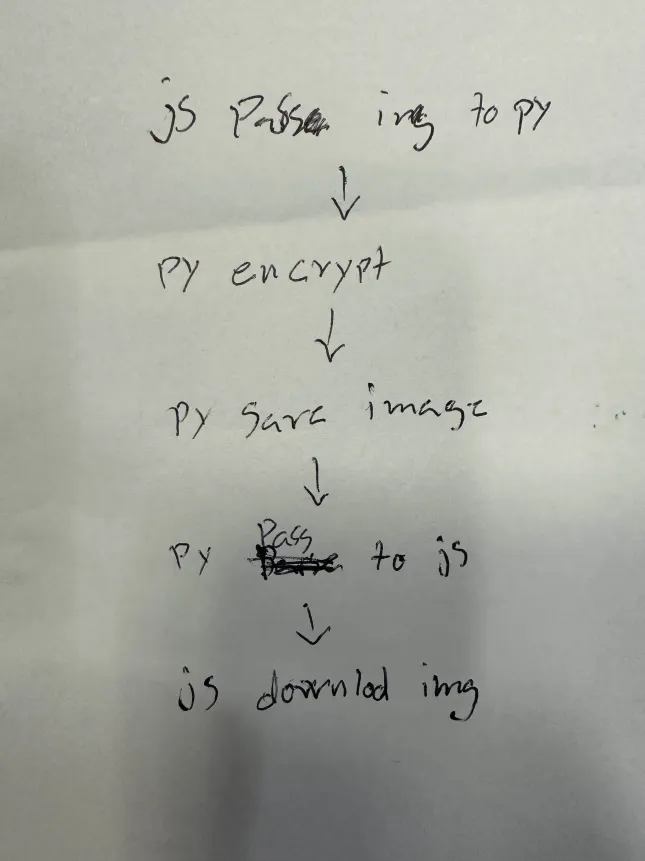 js Pass img to py
↓
py encrypt
↓
py save image
↓
py Pass to js
↓
js downlod img